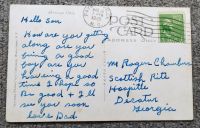 Hello Son
How are you getting
along are you
being a good
boy are you
having a good
time I hope so
Be good + I'll
see you soon
love Dad
POST
CARD
Mr Roger Chambers
Scottish Rite
Hospital
Decatur
Georgia